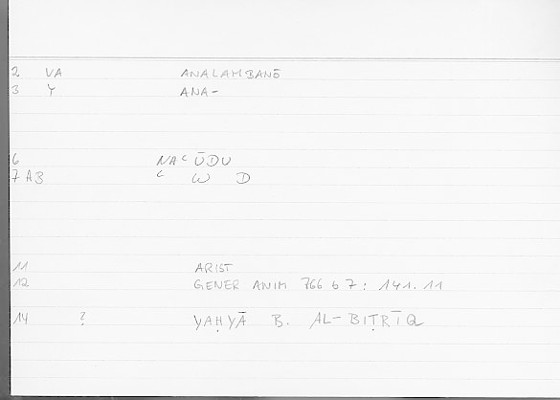 2 VA ANALAMBANŌ
3 Y ANA-
6 NAʿŪDU
7 AB ʿ W D
11 ARIST
12 GENER ANIM 766 b 7 : 141.11
14 ? YAḤYĀ B. AL-BIṬRĪQ